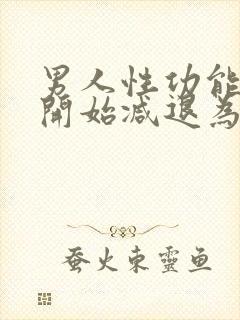 男人性功能
開始減退為
蚕火東靈鱼